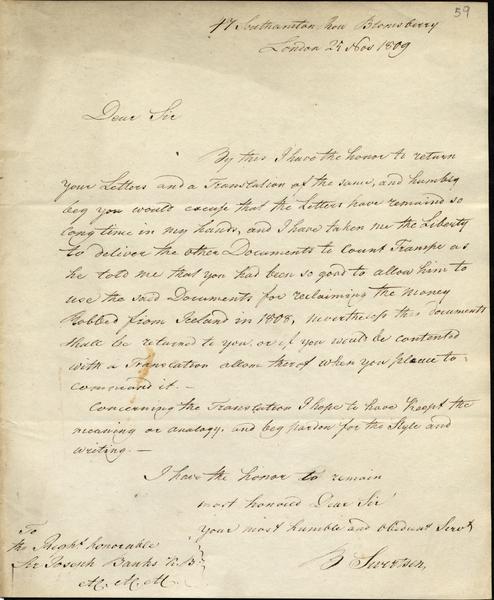 59
47 Southamton Row Bloomsberry
London 25 Nov 1809
Dear Sir
By this I have the honor to return
Your Letters and a Translation of the same, and humbly
beg you would excuse that the Letters have remaind so
long time in my hands, and I have taken me the Liberty
to deliver the other Documents to Count Trampe as
he told me that you had been so good to allow him to
use the said Documents for reclaiming the money
Robbed from Iceland in 1808, nevertheless this documents
shall be returned to you or if you would be contented
with a Translation allone therof when you please to
command it. —
Concerning the Translation I hope to have keept the
meaning or analogy, and beg pardon for the Style and
writing. —
I have the honor to remain
most honored Dear Sir
Your most humble and obedient Servt
To
the Right honorable
Sir Joseph Banks K. B.
M. M. M.